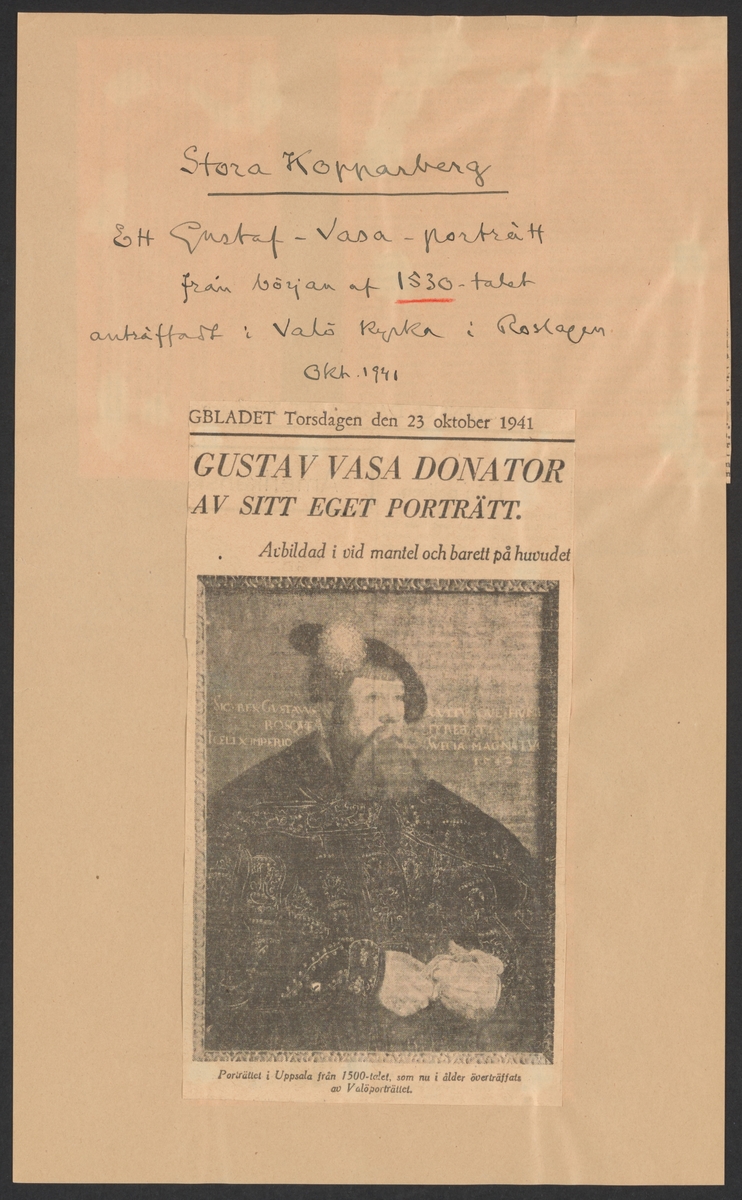 Stora Kopparberg
Ett Gustaf-Vasa-porträtt
från början af 1530-talet
anträffadt i Valö kyrka i Roslagen.
Okt. 1941
GBLADET Torsdagen den 23 oktober 1941
GUSTAV VASA DONATOR
AV SITT EGET PORTRÄTT.
Avbildad i vid mantel och barett på huvudet
SIC REX GUSTAVUS
IMPERIO
MAGNA
Porträttet i Uppsala från 1500-talet, som nu i ålder överträffats
av Valöporträttet.